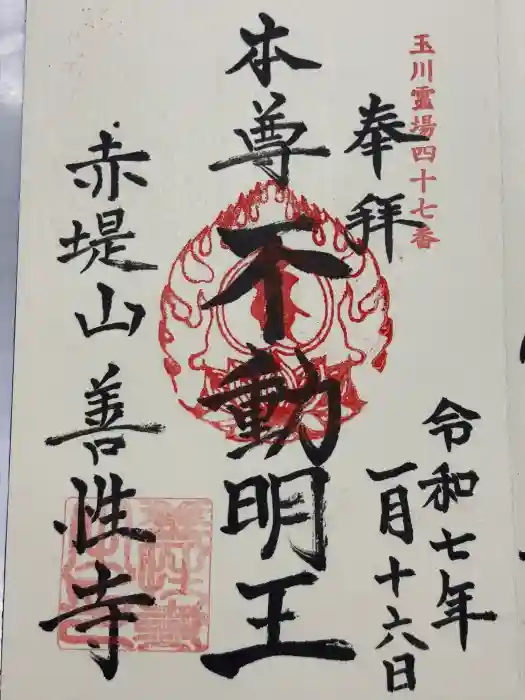 玉川霊場四十七番
奉拝
令和七年
一月十六日
本尊
不動明王
赤堤山 善性寺